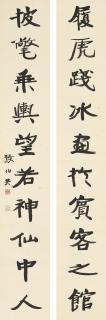 履虎踐冰畫於賓客之館
披氅乘輿望若神仙中人
張伯英